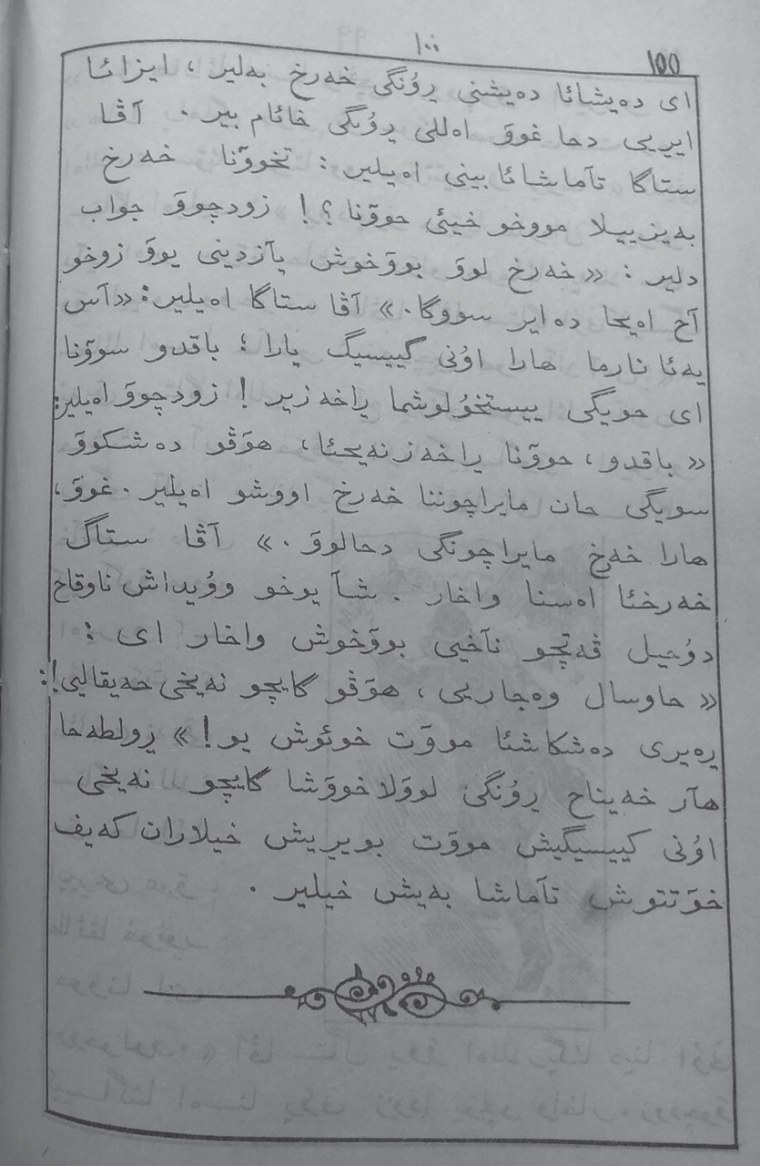 ١٠٠
100
ای دەیشائا دەیشنی یرۇنگی خەرخ بەلیر ، ایزائا
ایریی دحا غووٓ اەللی یرۇنگی خائام بیر . آڤا
ستاگا تآماشائا بینی اەیلیر : تخووٓنا خەرخ
بەیزییلا مووخو خیئی حووٓنا ؟! زودچووٓ جواب
دلیر : «خەرخ لووٓ بووٓخوش یآزدینی یووٓ زوخو
آخ اەیحا دەایر سووگا.» آڤا ستاگا اەیلیر: «آس
یەئا نارما هارا اۇنی گییسیگ یارا ؛ باقدو سووٓنا
ای حویگی ییستخۇلوشما یراخەزیر ! زودچووٓ اەیلیر:
« باقدو ، حووٓنا یراخەزنەیحئا ، هوٓڤو دەشکووٓ
سویگی حان مایراچوننا خەرخ اووشو اەیلیر . غووٓ،
هارا خەرخ مایراچونگی دحالووٓ .» آڤا ستاگ
خەرخئا اەسنا واخار . شآ یوخو وۇیداش ناوقاح
دۇحیل ڤەتچو نآخیی بووٓخوش واخار ای :
« حاوسال وەجاریی ، هوٓڤو گایچو نەیخی حەیقالیی!:
یرەیری دەشکاشئا مووٓت خوئوش یو!» یرولطەحا
هآر خەیناح یرۇنگی لووٓلاخووٓشا گایچو نەیخی
اۇنی کییسیگیش مووٓت بویریش خیلاران کەیف
خوٓتتوش تآماشا بەیش خیلیر .